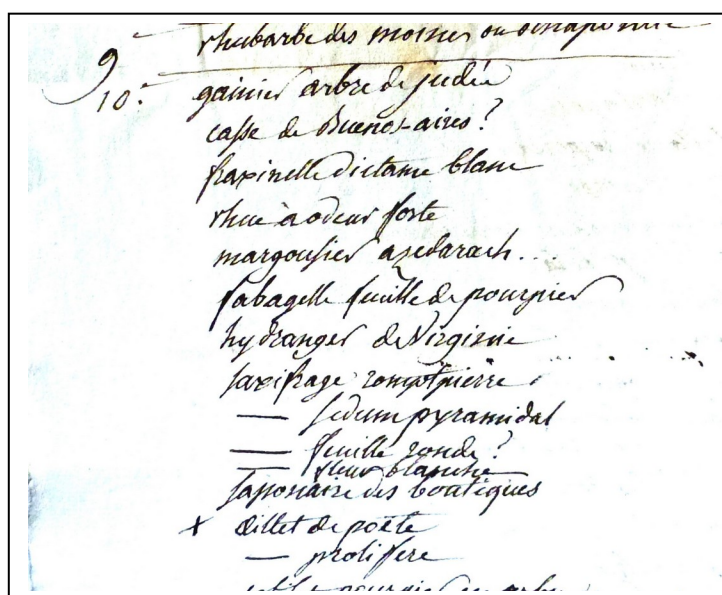 9 rhubarbe des moines ou
10.° gainier arbre de judée
casse de Buenos-aires ?
fraxinelle dictame blanc
rhue à odeur forte
margousier azedarach...
fabagelle feuille de pourpier
hydranger de Virginie
saxifrage rompt pierre
— sedum pyramidal
— feuille ronde ?
— fleur blanche
saponaire des boutiques
+ œillet de poëte
— prolifere
pourpier en arbre